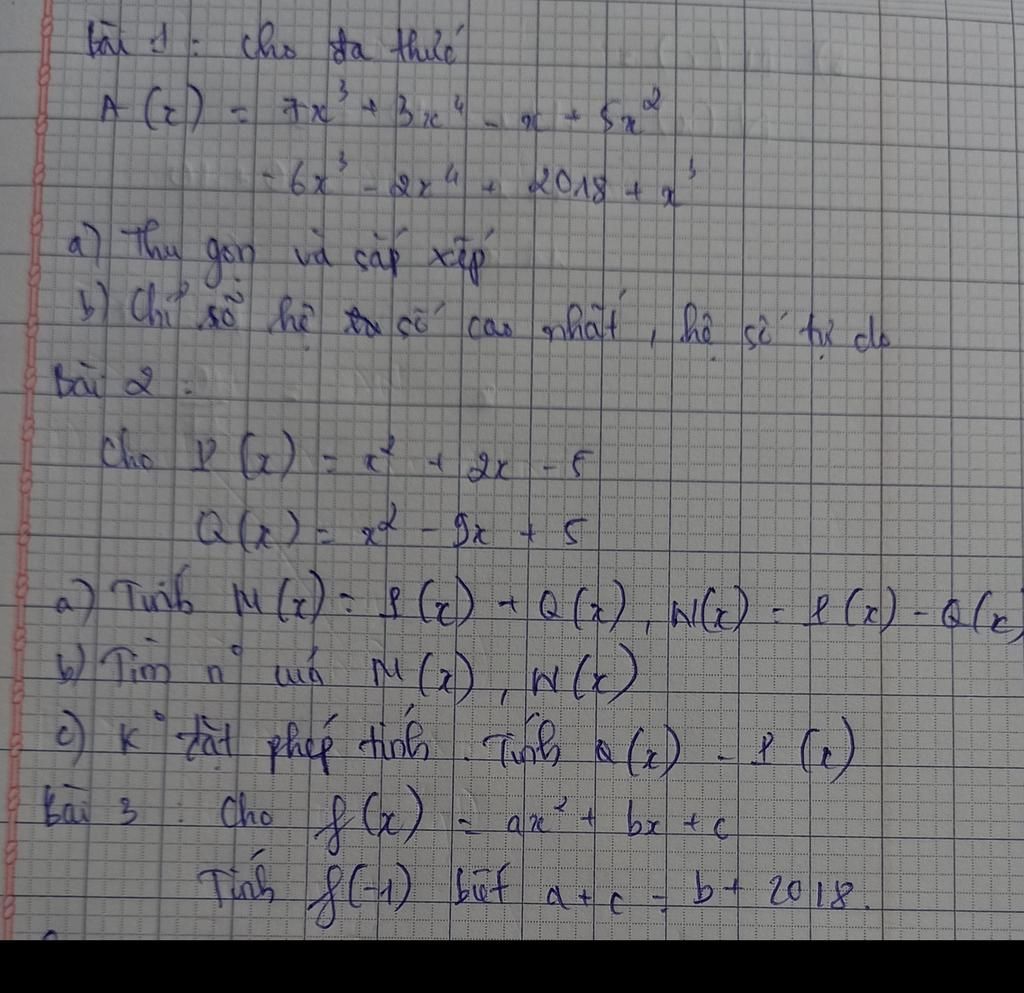 Bài 1 : Cho đa thức
A(x) = 7x³ + 3x⁴ - x + 5x²
- 6x³ - 2x⁴ + 2018 + x³
a) Thu gọn và sắp xếp
b) Chỉ số hệ số cao nhất, hệ số tự do
Bài 2 :
Cho P(x) = x² + 2x - 5
Q(x) = x² - 9x + 5
a) Tính M(x) = P(x) + Q(x), N(x) = P(x) - Q(x)
b) Tìm n° của M(x), N(x)
c) K° đặt phép tính. Tính Q(x) - P(x)
Bài 3 : Cho f(x) = ax² + bx + c
Tính f(-1) biết a + c = b + 2018.